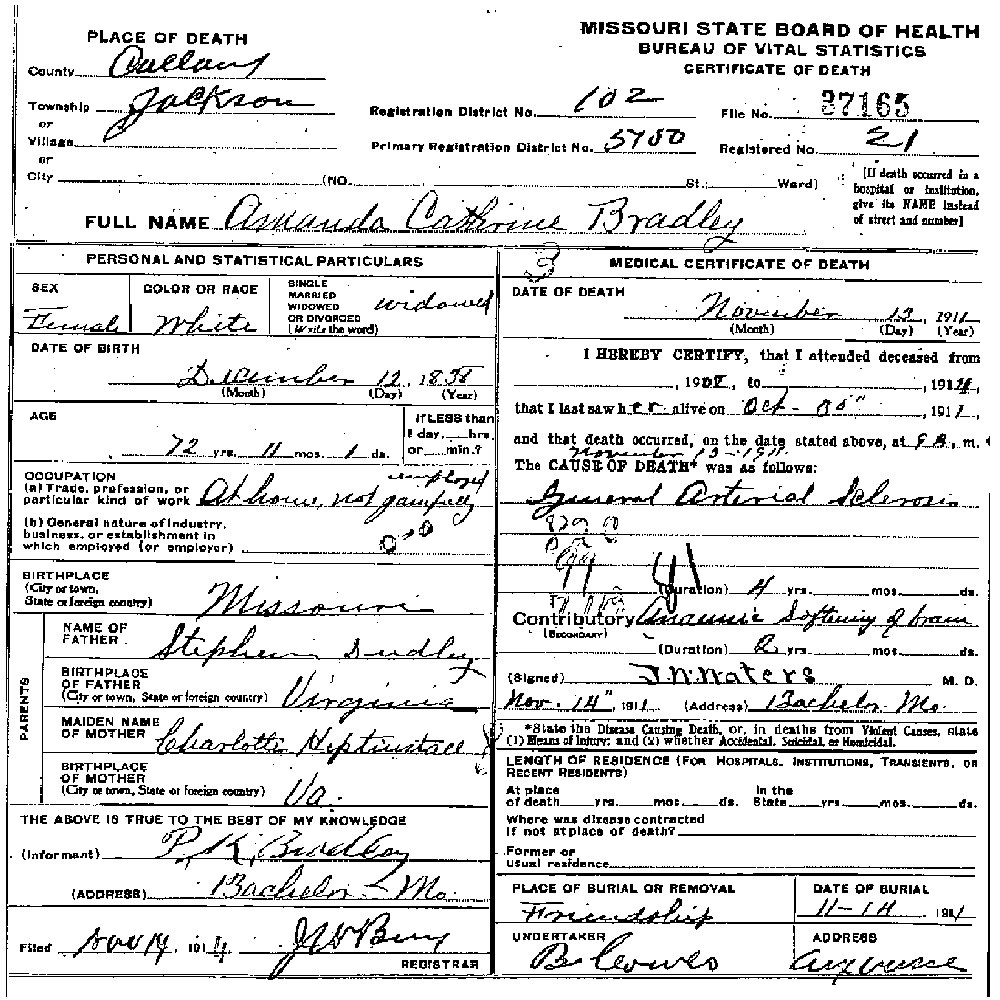 MISSOURI STATE BOARD OF HEALTH
BUREAU OF VITAL STATISTICS
CERTIFICATE OF DEATH
PLACE OF DEATH
County
Township Jackson
or
Village
or
City (NO. St.; Ward)
Registration District No. 102
File No. 37165
Primary Registration District No. 5700
Registered No. 21
[If death occurred in a
hospital or institution,
give its NAME instead
of street and number]
FULL NAME Amanda Cathrine Bradley
PERSONAL AND STATISTICAL PARTICULARS
SEX
Female
COLOR OR RACE
White
SINGLE
MARRIED
WIDOWED
OR DIVORCED
(Write the word)
widowed
DATE OF BIRTH
December 12, 1838
(Month) (Day) (Year)
AGE
72 yrs. 11 mos. 1 ds.
If LESS than
1 day, hrs.
or min.?
OCCUPATION
(a) Trade, profession, or
particular kind of work At home, not gainfully employed
(b) General nature of industry,
business, or establishment in
which employed (or employer)
BIRTHPLACE
(City or town,
State or foreign country) Missouri
PARENTS
NAME OF
FATHER Stephen Dudley
BIRTHPLACE
OF FATHER
(City or town, State or foreign country) Virginia
MAIDEN NAME
OF MOTHER Charlotte Heptinstall
BIRTHPLACE
OF MOTHER
(City or town, State or foreign country) Va.
THE ABOVE IS TRUE TO THE BEST OF MY KNOWLEDGE
(Informant) P. K. Bradley
(ADDRESS) Bachelor - Mo.
Filed Nov 14, 191
REGISTRAR
3
MEDICAL CERTIFICATE OF DEATH
DATE OF DEATH
November 13, 1911
(Month) (Day) (Year)
I HEREBY CERTIFY, that I attended deceased from
, 190 , to , 191
that I last saw her alive on Oct- , 1911,
and that death occurred, on the date stated above, at m.
November 13-1911
The CAUSE OF DEATH* was as follows:
General Arterial Sclerosis
(Duration) 4 yrs. mos. ds.
Contributory Anaemic Softening of brain
(SECONDARY)
(Duration) 2 yrs. mos. ds.
(Signed) J.N.Waters M. D.
Nov. 14", 1911 (Address) Bachelor Mo.
*State the Disease Causing Death, or, in deaths from Violent Causes, state
(1) Means of Injury; and (2) whether Accidental, Suicidal, or Homicidal.
LENGTH OF RESIDENCE (FOR HOSPITALS, INSTITUTIONS, TRANSIENTS, OR
RECENT RESIDENTS)
At place
of death yrs. mos. ds.
In the
State yrs. mos. ds.
Where was disease contracted
if not at place of death?
Former or
usual residence
PLACE OF BURIAL OR REMOVAL
Friendship
DATE OF BURIAL
11-14 1911
UNDERTAKER
ADDRESS
Auxvasse